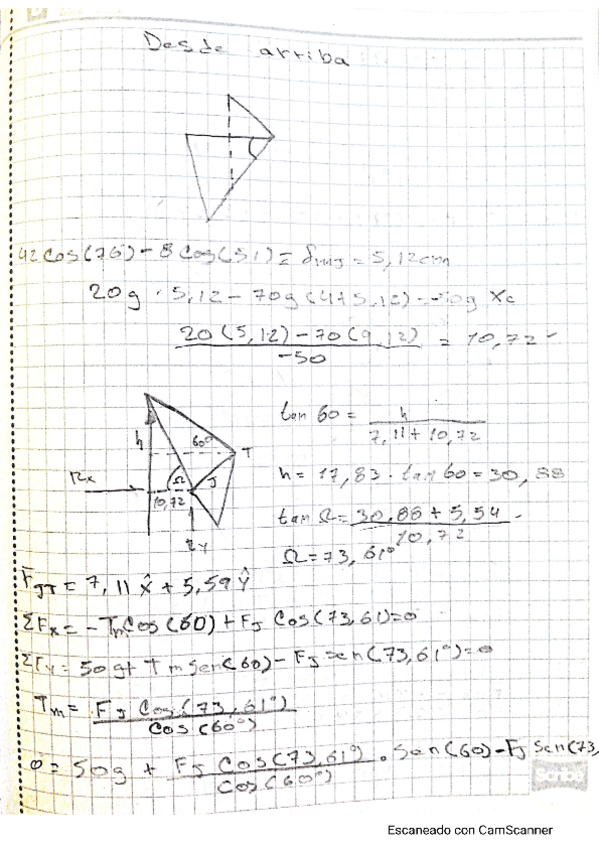 Desde arriba
42 Cos(76) - 8 Cos(51) = = 5,12cm
20g · 5,12 - 70g (4+5,12) = -50g Xc
20(5,12) - 70(9,12) / -50 = 10,72
tan 60 = h / 7,11 + 10,72
h
60°
T
h = 17,83 · tan 60 = 30,88
Rx
Ω
J
10,72
tan Ω = 30,88 + 5,54 / 10,72
Ω = 73,61°
= 7,11 x̂ + 5,59 ŷ
ΣFx = -Tm Cos(60) + FJ Cos(73,61) = 0
ΣFy = 50g + Tm Sen(60) - FJ Sen(73,61°) = 0
Tm = FJ Cos(73,61°) / Cos(60°)
0 = 50g + FJ Cos(73,61)° / Cos(60°) · Sen(60) - FJ Sen(73,
Scribe
Escaneado con CamScanner